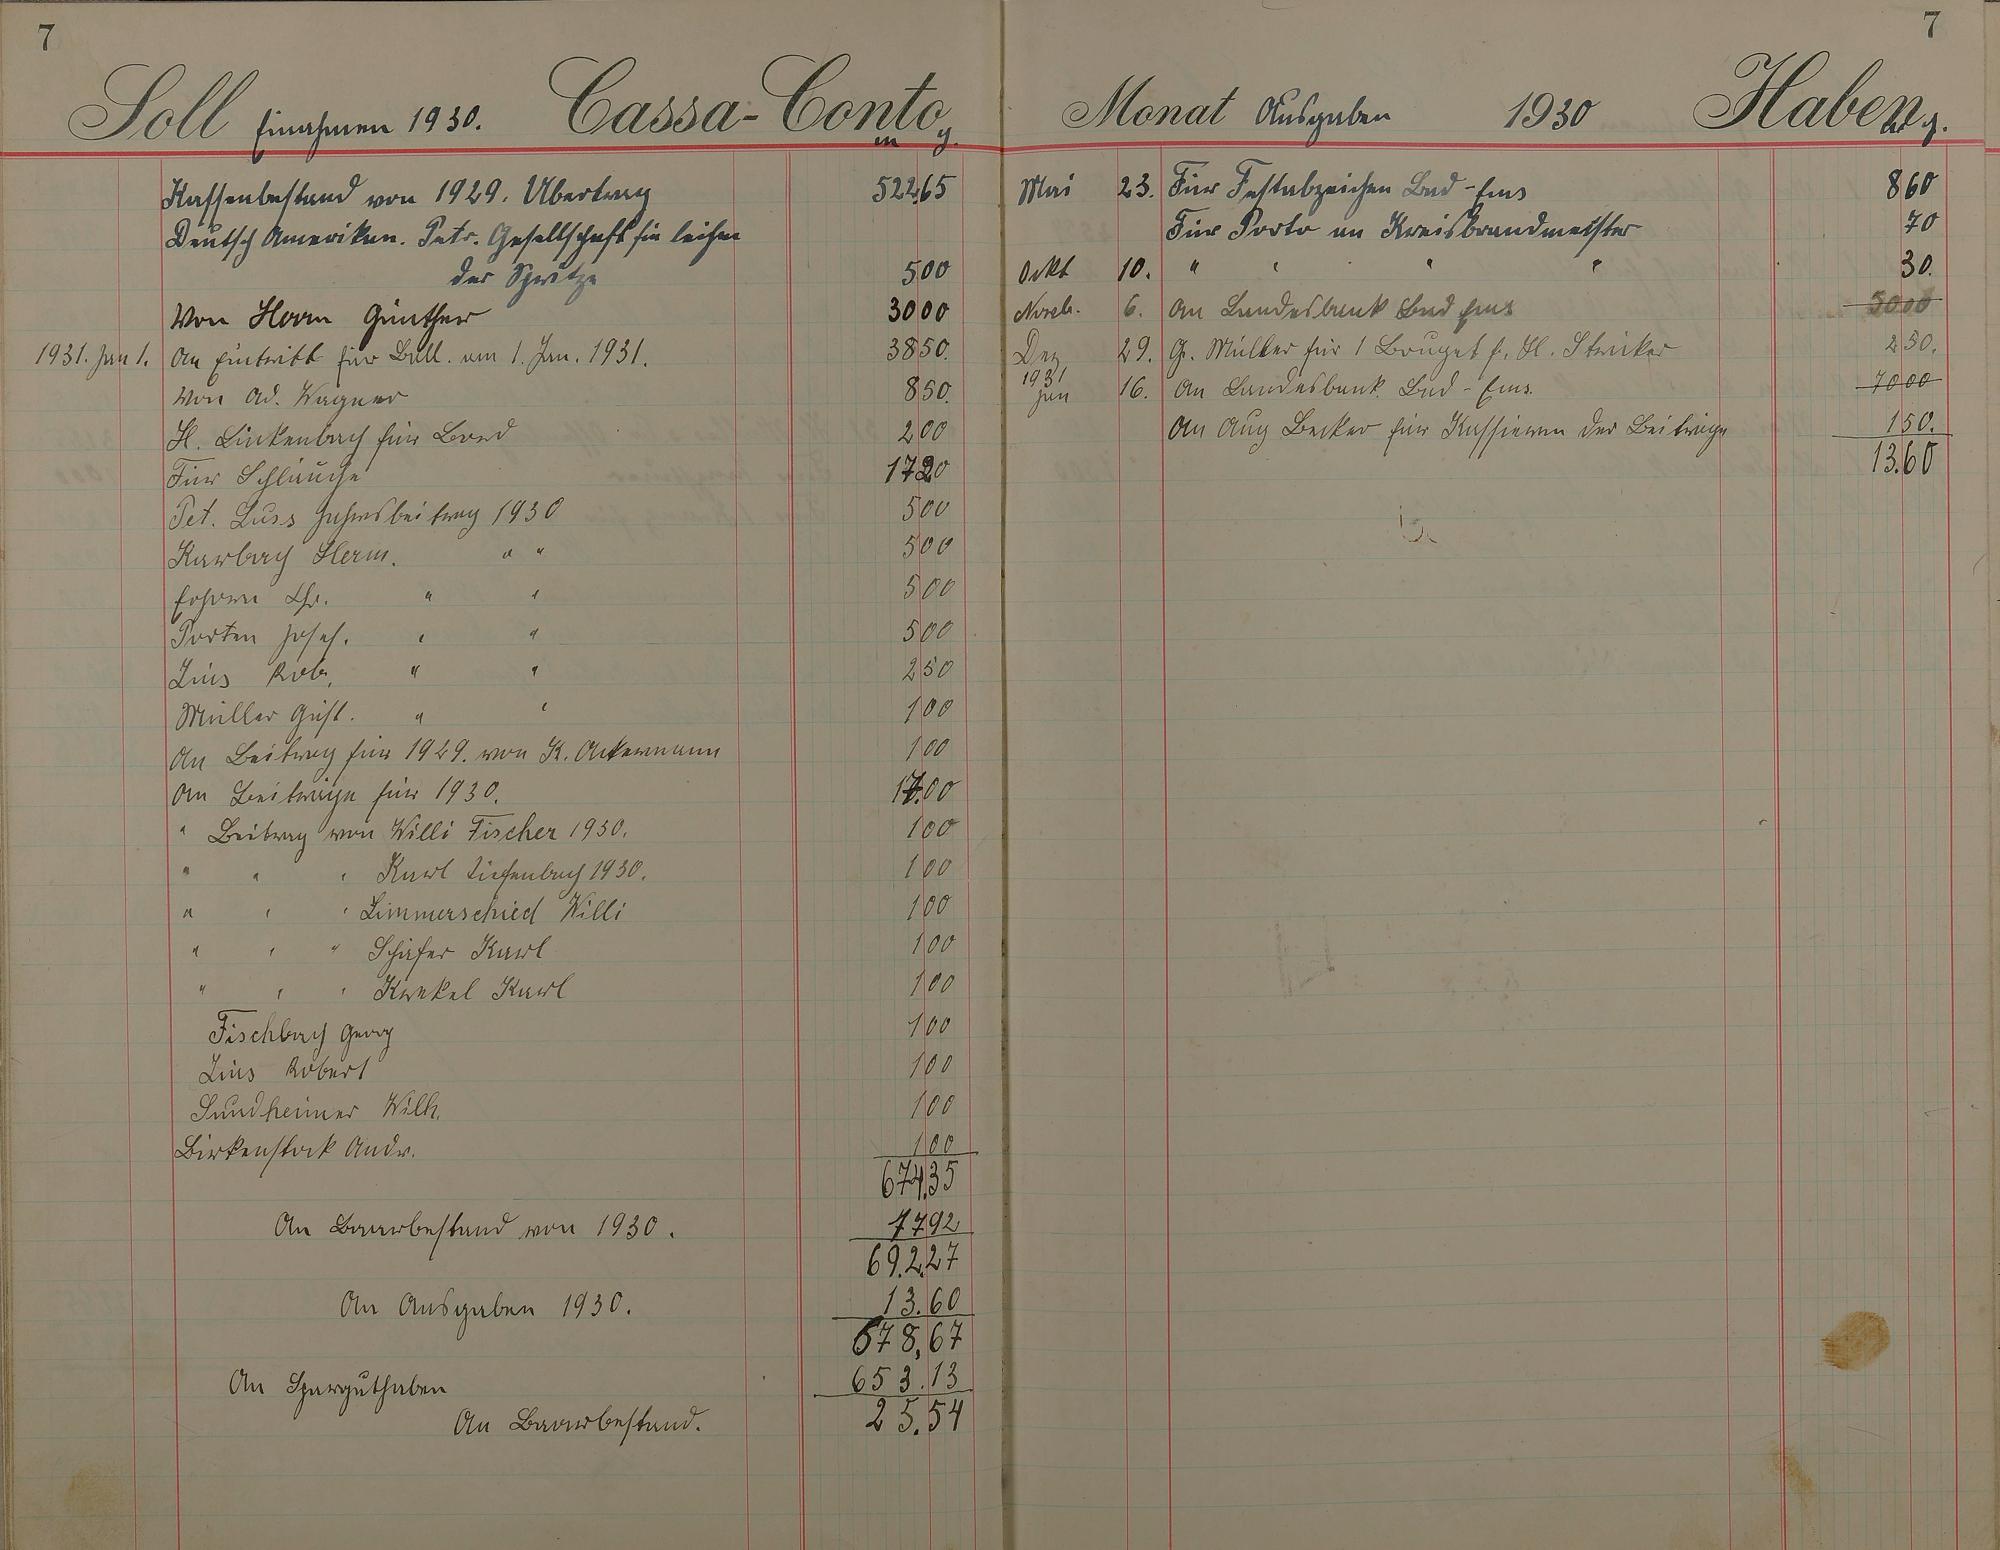 7
Soll Einnahmen 1930. Cassa-Conto
M 
Kassenbestand von 1929. Übertrag 522,65
Deutsch Amerikan. Petr. Gesellschaft für leihen
der Spritze 5 00
Von Herrn Günther 30 00
1931. Jan 1. An Eintritt für Ball. am 1. Jan. 1931. 38 50.
Von Ad. Wagner 8 50.
H. Linkenbach für Bord 2 00
Für Schläuche 17 20
Pet. Luss Jahresbeitrag 1930 5 00
Karbach Herm. " " 5 00
Chr. " " 5 00
Porten Josef. " " 5 00
Zins Rob. " " 2 50
Müller Gust. " " 1 00
An Beitrag für 1929. von K. Ackermann 1 00
An Beiträge für 1930. 17.00
" Beitrag von Willi Fischer 1930. 1 00
" " " Karl Tiefenbach 1930. 1 00
" " " Zimmerschied Willi 1 00
" " " Schäfer Karl 1 00
" " " Krekel Karl 1 00
Fischbach Georg 1 00
Zins Robert 1 00
Sundheimer Wilh. 1 00
Birkenstock Andr. 1 00
674,35
An Baarbestand von 1930. 17 92
69.2.27
An Ausgaben 1930. 13.60
678,67
An Sparguthaben 653.13
An Baarbestand. 25.54
7
Monat Ausgaben 1930 Haben
Mai 23. Für Festabzeichen Bad-Ems 8 60
Für Porto an Kreisbrandmeister 70
Ockt 10. " " " " 30.
Noveb. 6. An Landesbank Bad Ems 50 00
Dez 29. G. Müller für 1 Bouget f. H. Stricker 2 50.
1931
Jan 16. An Landesbank Bad-Ems. 70 00
An Aug Becker für Kassieren der Beiträge 1 50.
13.60